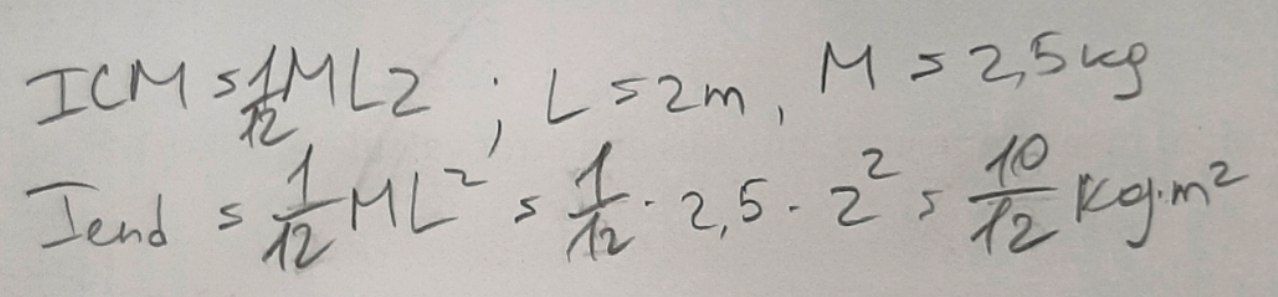 ICM = 1/12 ML2 ; L = 2m, M = 2,5 kg
Iend = 1/12 ML² = 1/12 · 2,5 · 2² = 10/12 kg·m²